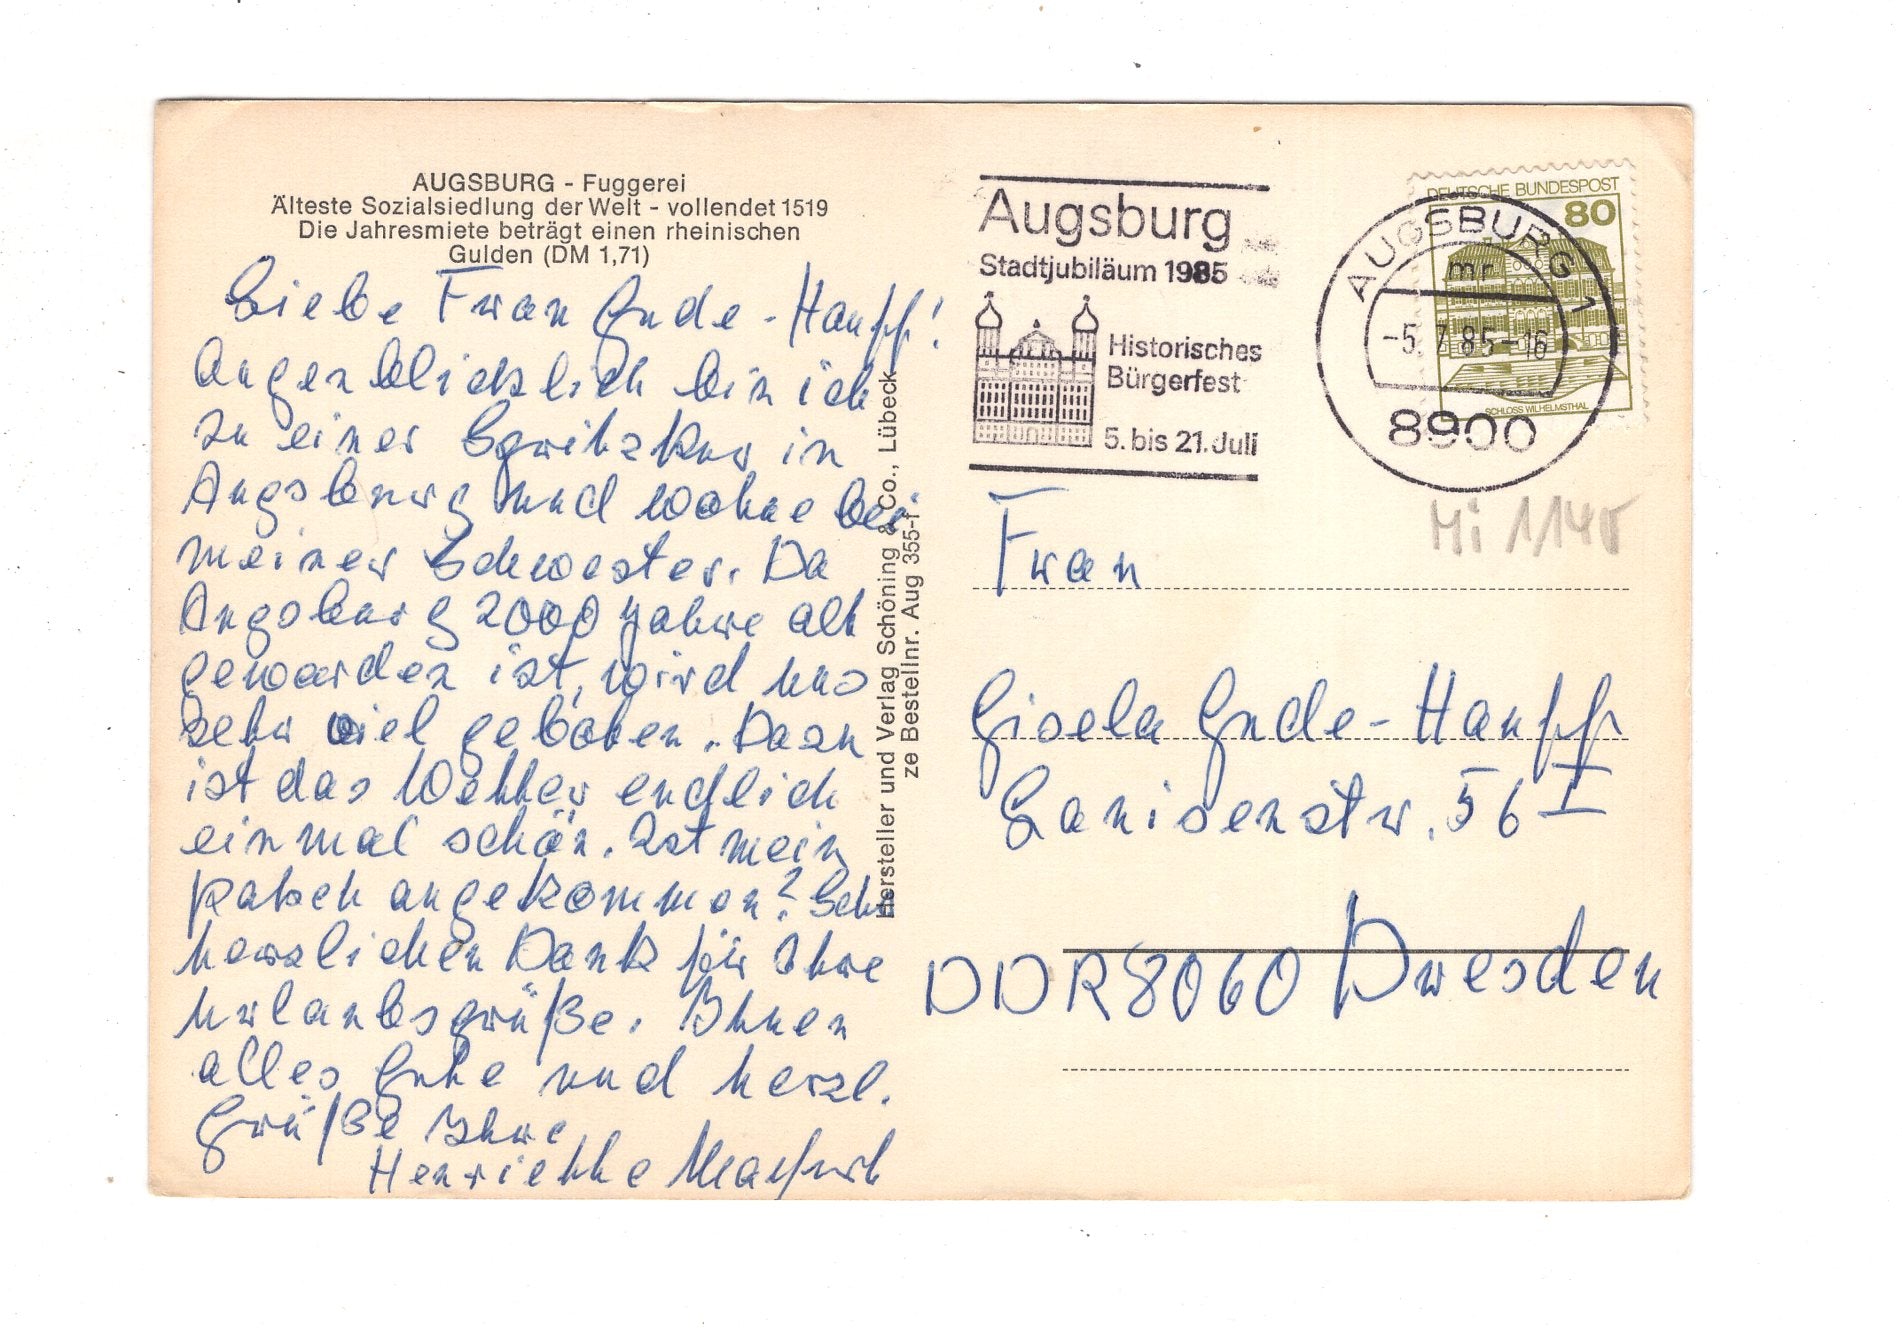 AUGSBURG - Fuggerei
Älteste Sozialsiedlung der Welt - vollendet 1519
Die Jahresmiete beträgt einen rheinischen
Gulden (DM 1,71)
Liebe Frau Gude-Hanpf!
Augenblicklich bin ich
zu einer Spritzkur in
Augsburg und wohne bei
meiner Schwester. Da
Augsburg 2000 Jahre alt
geworden ist, wird uns
sehr viel geboten. Dazu
ist das Wetter endlich
einmal schön. Ist mein
angekommen? Sehr
herzlichen Dank für Ihre
Urlaubsgrüße. Ihnen
alles Gute und herzl.
Grüße Ihre
Henriette
Hersteller und Verlag Schöning & Co., Lübeck
ze Bestellnr. Aug 355-f
Augsburg
Stadtjubiläum 1985
Historisches
Bürgerfest
5. bis 21. Juli
DEUTSCHE BUNDESPOST
80
SCHLOSS WILHELMSTHAL
AUGSBURG 1
mr
-5.7.85-16
8900
Mi 1140
Frau
Gisela Gude-Hanpf
56 I
DDR 8060 Dresden